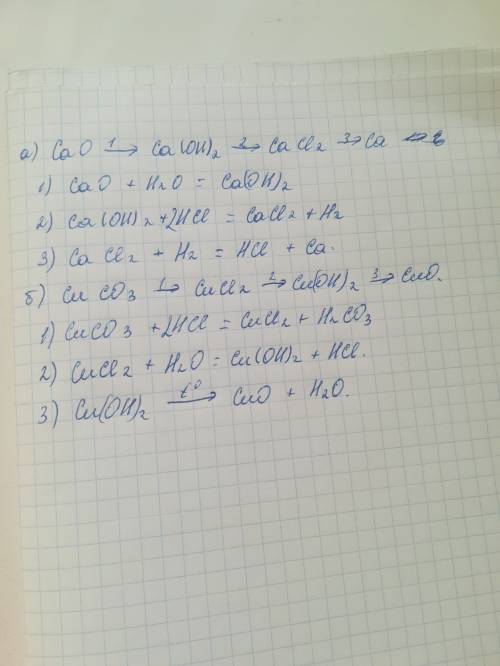 а) CaO 1→ Ca(OH)2 2→ CaCl2 3→ Ca
1) CaO + H2O = Ca(OH)2
2) Ca(OH)2 + 2HCl = CaCl2 + H2
3) CaCl2 + H2 = HCl + Ca.
б) CuCO3 1→ CuCl2 2→ Cu(OH)2 3→ CuO.
1) CuCO3 + 2HCl = CuCl2 + H2CO3
2) CuCl2 + H2O = Cu(OH)2 + HCl.
3) Cu(OH)2 t°→ CuO + H2O.